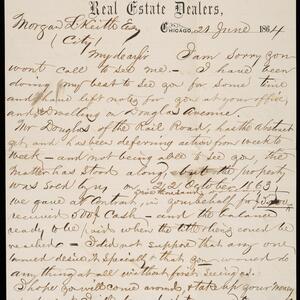 Real Estate Dealers,
Chicago, 21 June 1864
Morgan L Keith Esq
(City)
My dear Sir I am Sorry you
wont call to see me. I have been
doing my best to see you for some time
and have left notes for you at your office,
and dwelling on Douglas Avenue.
Mr Douglas of the Rail Road, has the abstract
yet, and has been deferring action from week to
week – and not being able to see you, the
matter has stood along, but the property
was sold by us on 2/2 October 1863,
we gave a contract, in your behalf for
received 500# Cash – and the balance
ready to be paid when the letter could be
reached – I did not suppose that any one
desired it specially that you would do
any thing at all without first seeing us.
I hope you will come around, & take up your money